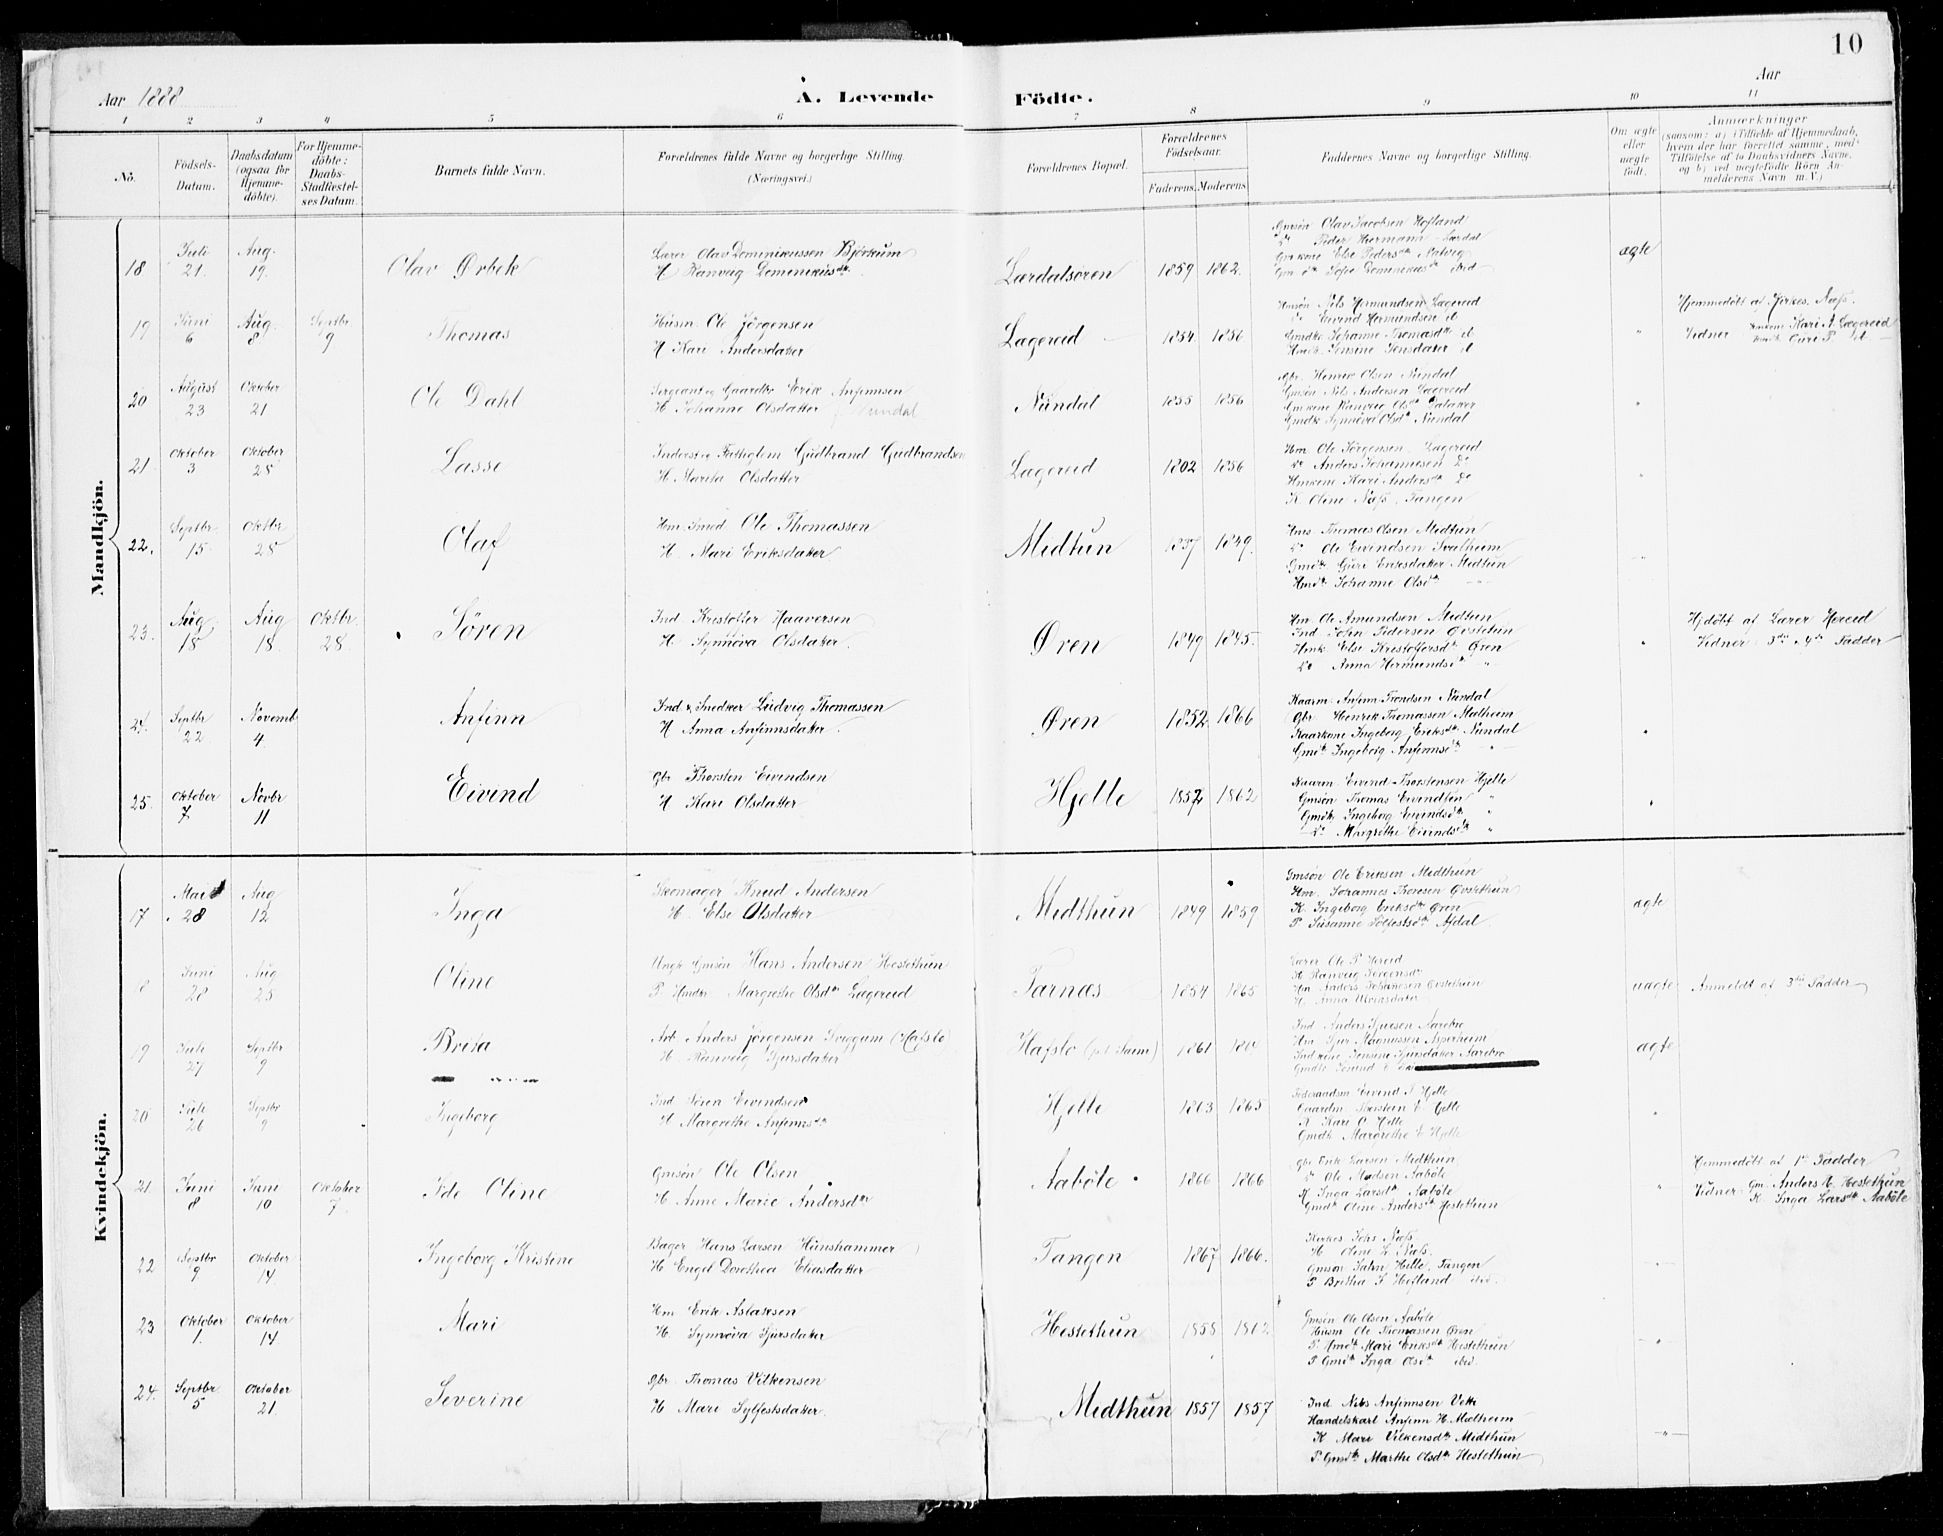 10
Aar 1888 A. Levende Födte. Aar
1 2 3 4 5 6 7 8 9 10 11
No. Födsels-Datum. Daabsdatum (ogsaa for Hjemme-döbte). For Hjemme-döbte: Daabs-Stadfæstel-ses Datum. Barnets fulde Navn. Forældrenes fulde Navne og borgerlige Stilling. (Næringsvei.) Forældrenes Bopæl. Forældrenes Födselsaar. Faderens. Moderens. Faddernes Navne og borgerlige Stilling. Om ægte eller uægte födt. Anmærkninger (saasom: a) i Tilfælde af Hjemmedaab, hvem der har forrettet samme, med Tilföielse af to Daabsvidners Navne, og b) ved uægtefödte Börn Anmelderens Navn m. V.)
Mandkjön.
18 Juli 21 Aug. 19. Olav Ørbek Lærer Olav Dominikussen Bjørkum
H Ranveig Dominikusdtr. Lærdalsøren 1859 1862. ægte
Gmsøn Olav Jacobsen Hofland
Do Peder Hermann Lærdal
19 Juni 6 Aug. 8 Septbr 9 Thomas Husm. Ole Jörgensen
H Kari Andersdatter Lægereid 1854 1856
Nils Hermundsen Lægereid
Do Eivind Hermundsen
Johanne Thomasdtr
Hmdtr Jensine Jensdatter
Hjemmedöbt af Kirkes. Næss.
Vidner Kari A. Lægereid
Guri P.
20 August 23 Oktober 21 Ole Dahl Sergeant og Gaardbr Erik Anfinnsen
H Johanne Olsdatter Nundal Nundal 1855 1856
Gbr. Henrik Olsen Nundal
Gmsøn Nils Andersen Lægereid
Gmdtr Synnöva Olsdtr Nundal
21 Oktober 3 Oktober 28 Lasse Inderst og Fattiglem Gudbrand Gudbrandsen
H. Marita Olsdatter Lægereid 1802 1856
Hm Ole Jörgensen Lægereid
Do Anders Johannesen Do
Hmkone Kari Andersdtr Do
K Oline Næss, Tangen
22. Septbr 15 Oktbr 28 Olaf Hm. Smed Ole Thomassen
H. Mari Eriksdatter Midtun 1837 1849.
Hms Thomas Olsen Midtun
Do Ole Eivindsen Svalheim
Gmdtr Guri Eriksdatter Midtun
Hmdtr Johanne Olsdtr
23. Aug. 18 Aug 18. Oktbr. 28. Sören Ind Kristoffer Haaversen
H Synnöva Olsdatter. Øren 1849 1845.
Hm Ole Amundsen Midtun
Ind John Pedersen Qvistetun
Hmk Else Kristoffersdtr Øren
Do Anna Hermundsdtr
Hjdöbt af Lærer Hereid
Vidner: 3die 4de Fadder
24. Septbr 22 Novemb 4. Anfinn Ind & Snedker Ludvig Thomassen
H Anna Anfinnsdatter. Øren 1852 1866
Kaarm. Anfinn Trondsen Nundal
Gbr. Henrik Thomassen Mælheim
Kaarkone Ingeborg Eriksdtr Nundal
Gmdtr Ingeborg Anfinnsdtr
25. Oktober 7 Novbr 11 Eivind Gbr Thorsten Eivindsen
H Kari Olsdatter Hjelle 1852 1862
Kaarm Eivind Thorstensen Hjelle
Gmsøn Thomas Eivindsen
Gmdtr Ingeborg Eivindsdtr
Do Margrethe Eivindsdtr
Kvindekjön.
17 Mai 28 Aug 12 Inga Skomager Knud Andersen
H. Else Olsdatter Midthun 1849 1859 ægte
Gmsøn Ole Eriksen Midthun
Hm. Johannes Thoresen Qvistethun
K. Ingeborg Eriksdtr Øren
P. Susanne Sölfestsdtr Afdal.
18 Juni 28 Aug 25 Oline Ungk Gmsøn Hans Andersen Hestethun
P. Hmdtr Margrethe Olsdtr Lægereid Tarnæs 1854 1865 uægte
Lærer Ole P Hereid
H Ranveig Jörgensdtr
Anmeldt af 3die Fadder
19 Juli 27 Septbr 9 Brita Arb Anders Jörgensen Sviggum (Hafslo)
H. Ranveig Sjursdatter Hafslo 1861 ægte
Ind Anders Aarebro
Hm Sjur Magnussen Asperheim
20 Juli 26 Septbr 9 Ingeborg Ind Sören Eivindsen
H Margrethe Anfinnsdtr Hjelle 1863 1865
Föderaadsm Eivind T Hjelle
Gaardm Thorstein E Hjelle
K Kari O Hjelle
Gmdtr Margrethe E Hjelle
21 Juni 8 Juni 10 Oktober 7. Ide Oline Gmsøn Ole Olsen
H Anne Marie Andersdtr Aaböle 1866 1866
Gbr Erik Larsen Midthun
Do Ole Madsen Aaböle
K Inga Larsdtr Aaböle
Gmdtr Oline Andersdtr Hestethun
Hjemmedöbt af 1ste Fadder
Vidner: Gm. Anders E. Hestethun
K. Inga Larsdtr Aaböle
22 Septbr 9 Oktober 14 Ingeborg Kristine Bager Hans Larsen Hunshammer
H Engel Dorothea Eliasdatter Tangen 1867 1866.
Kirkes. Johs Næss
H Oline L Næss.
Gmsøn John Hille, Tangen
P Britha J Hofland ibid.
23 Oktober 1. Oktober 14 Mari Hm Erik Aslaksen
H. Synnöva Sjursdatter Hestethun 1858 1862
Gmsøn Ole Olsen Aaböle
Husm Ole Thomassen Øren
P. Hmdtr Mari Eriksdtr Hestethun
P Gmdtr Inga Olsdtr ibid.
24. Septbr. 5 Oktober 21. Severine Gbr. Thomas Vilkensen
H Mari Sylfestsdatter. Midthun 1857 1857
Ind Nils Anfinnsen Vetti
Handelskarl Anfinn H. Mælheim
K Mari Vilkensdtr Midthun
P. Gmdtr Marthe Olsdtr Hestethun